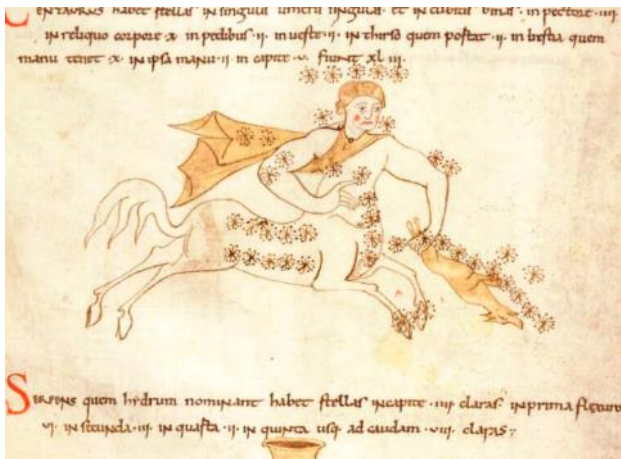 CENTAURUS habet stellas in singulis umeris singulas. et in cubitis binas. in pectore .iiii.
in reliquo corpore .x. in pedibus .ii. in ueste .ii. in thirso quem portat .ii. in bestia quem
manu tenet .x. in ipsa manu .ii. in capite .v. fiunt xl iii.
SERPENS quem hydrum nominant habet stellas in capite .iii. claras. in prima flexura
vi. in secunda .iii. in quarta .ii. in quinta usq. ad caudam .viii. claras;